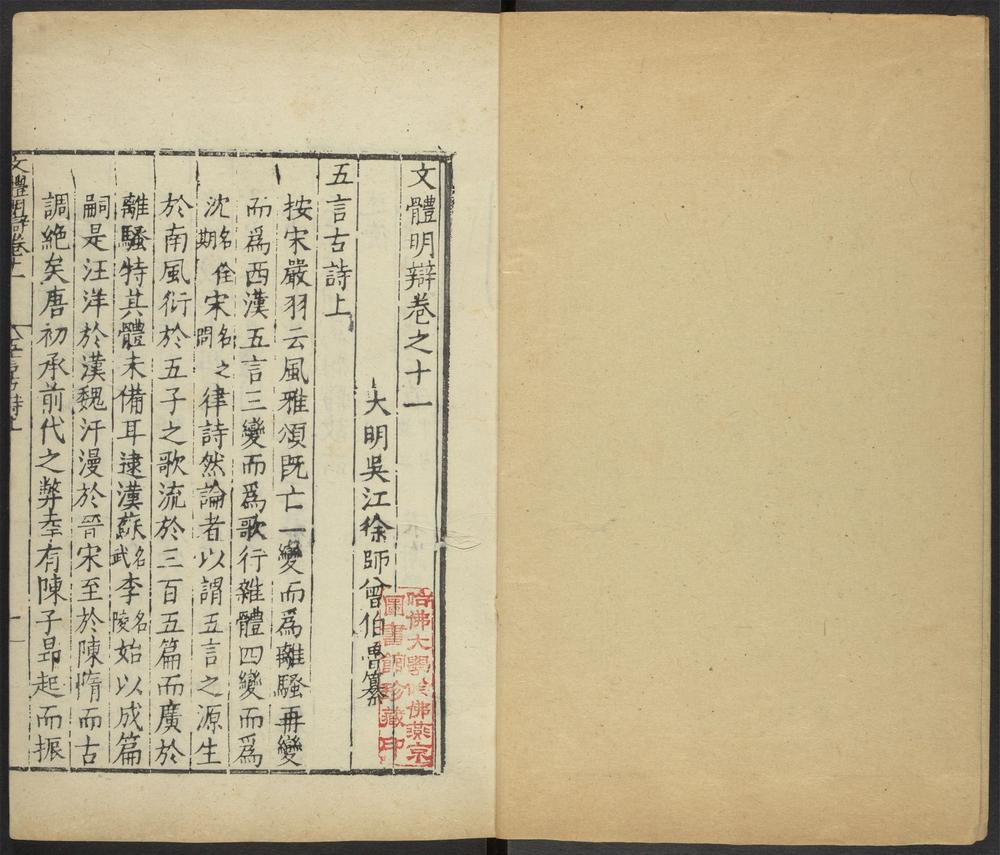 文體明辯卷之十一
大明吳江徐師曾伯魯纂
五言古詩上
按宋嚴羽云風雅頌既亡一變而爲離騷再變
而爲西漢五言三變而爲歌行雜體四變而爲
沈名佺期宋名之問律詩然論者以謂五言之源生
於南風衍於五子之歌流於三百五篇而廣於
離騷特其體未備耳逮漢蘇名武李名陵始以成篇
嗣是汪洋於漢魏汗漫於晉宋至於陳惰而古
調絶矣唐初承前代之弊幸有陳子昻起而振
文體明辯卷十一
五言古詩上
哈佛大學哈佛燕京
圖書館珍藏印